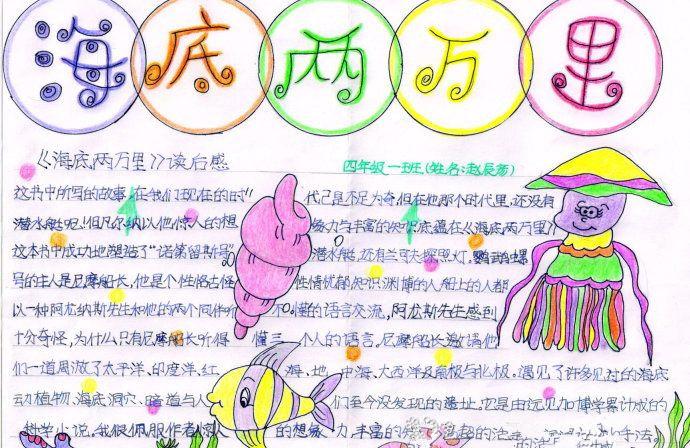 海底两万里
《海底两万里》读后感 四年级一班(姓名:赵辰荡)
这书中所写的故事,在我们现在的时代己是不足为奇,但在他那个时代里,还没有
潜水艇呢。但凡尔纳以他惊人的想像力与丰富的知识底蕴在《海底两万里》
这本书中成功地塑造了"诺第留斯号"潜水艇,还有兰可夫探照灯。鹦鹉螺
号的主人是尼摩船长,他是个性格古怪性情忧郁知识渊博的人船上的人都
以一种阿龙纳斯先生和他的两个同伴听不懂的语言交流,阿龙斯先生感到
十分奇怪,为什么只有尼摩船长听得懂三个人的语言,尼摩船长邀请他
们一道周游了太平洋、印度洋、红海、地中海、大西洋及南极与北极。遇见了许多见过的海底
动植物、海底洞穴、暗道与人们至今没发现的遗址。它是由远见加博学累计成的
科学小说。我很佩服作者惊人的想象力、丰富的